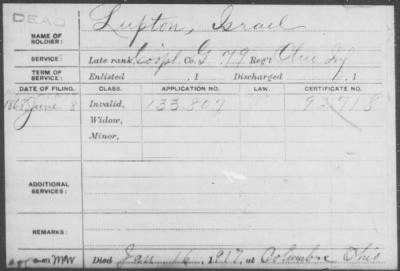 DEAD
NAME OF SOLDIER: Lupton, Israel
SERVICE: Late rank, Corpl. Co. G, 79 Reg't Ohio Inf
TERM OF SERVICE: Enlisted , 1 Discharged , 1
DATE OF FILING. CLASS. APPLICATION NO. LAW. CERTIFICATE NO.
1868 June 8 Invalid, 133.807 92718
Widow,
Minor,
ADDITIONAL SERVICES:
REMARKS:
Died Jan 16, 1917, at Columbus Ohio